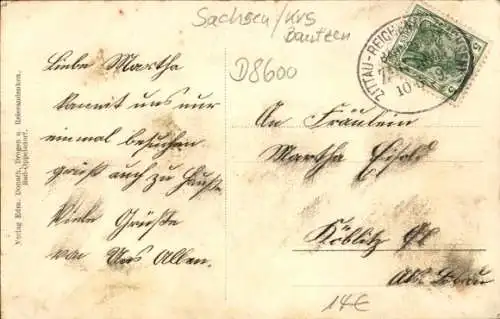 Sachsen/Krs
Bautzen
D8600
ZITTAU-REICHENAU
10
5
5
Liebe Martha
kannst uns nur
einmal besuchen
grüßt auch zu Hause
Viele Grüße
von Uns Allen.
An Fräulein
Martha
Köblitz
14€
Verlag Edm. Donath, Drogen u. Reiseandenken,
Bad-Oppelsdorf.